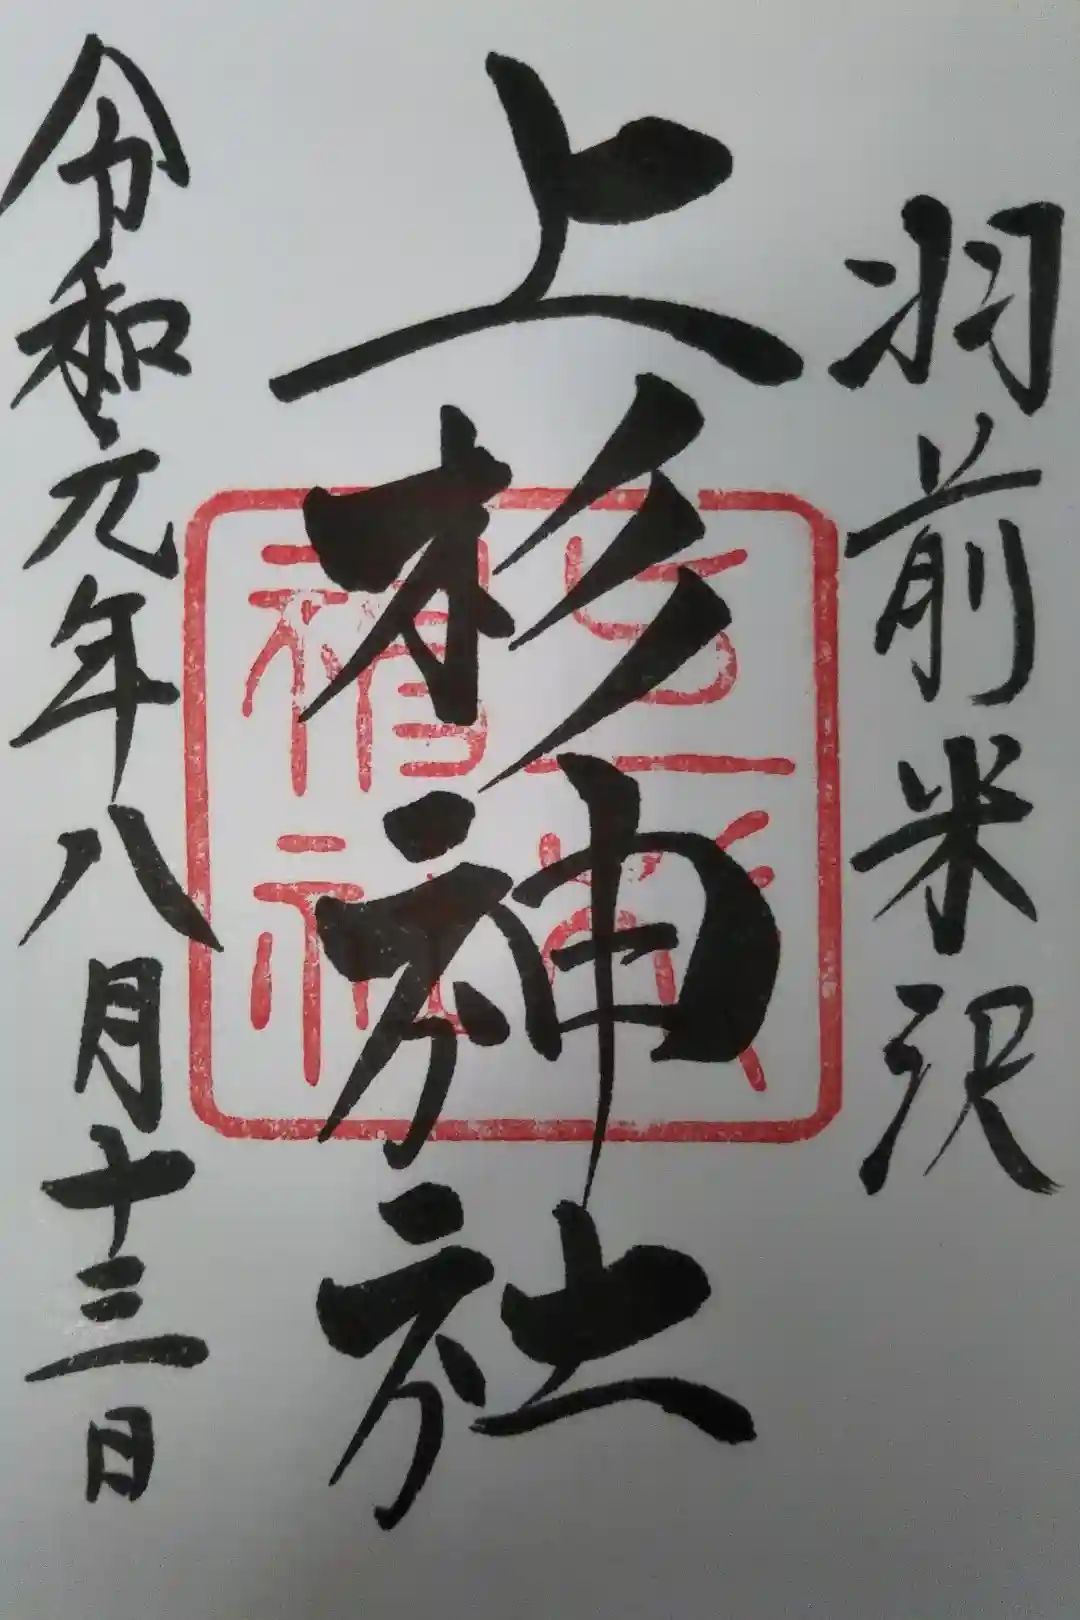 羽前米沢
上杉神社
上杉神社
令和元年八月十三日